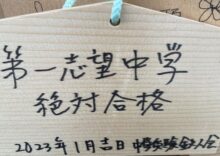 第一志望中学
絶対合格
2023年1月吉日